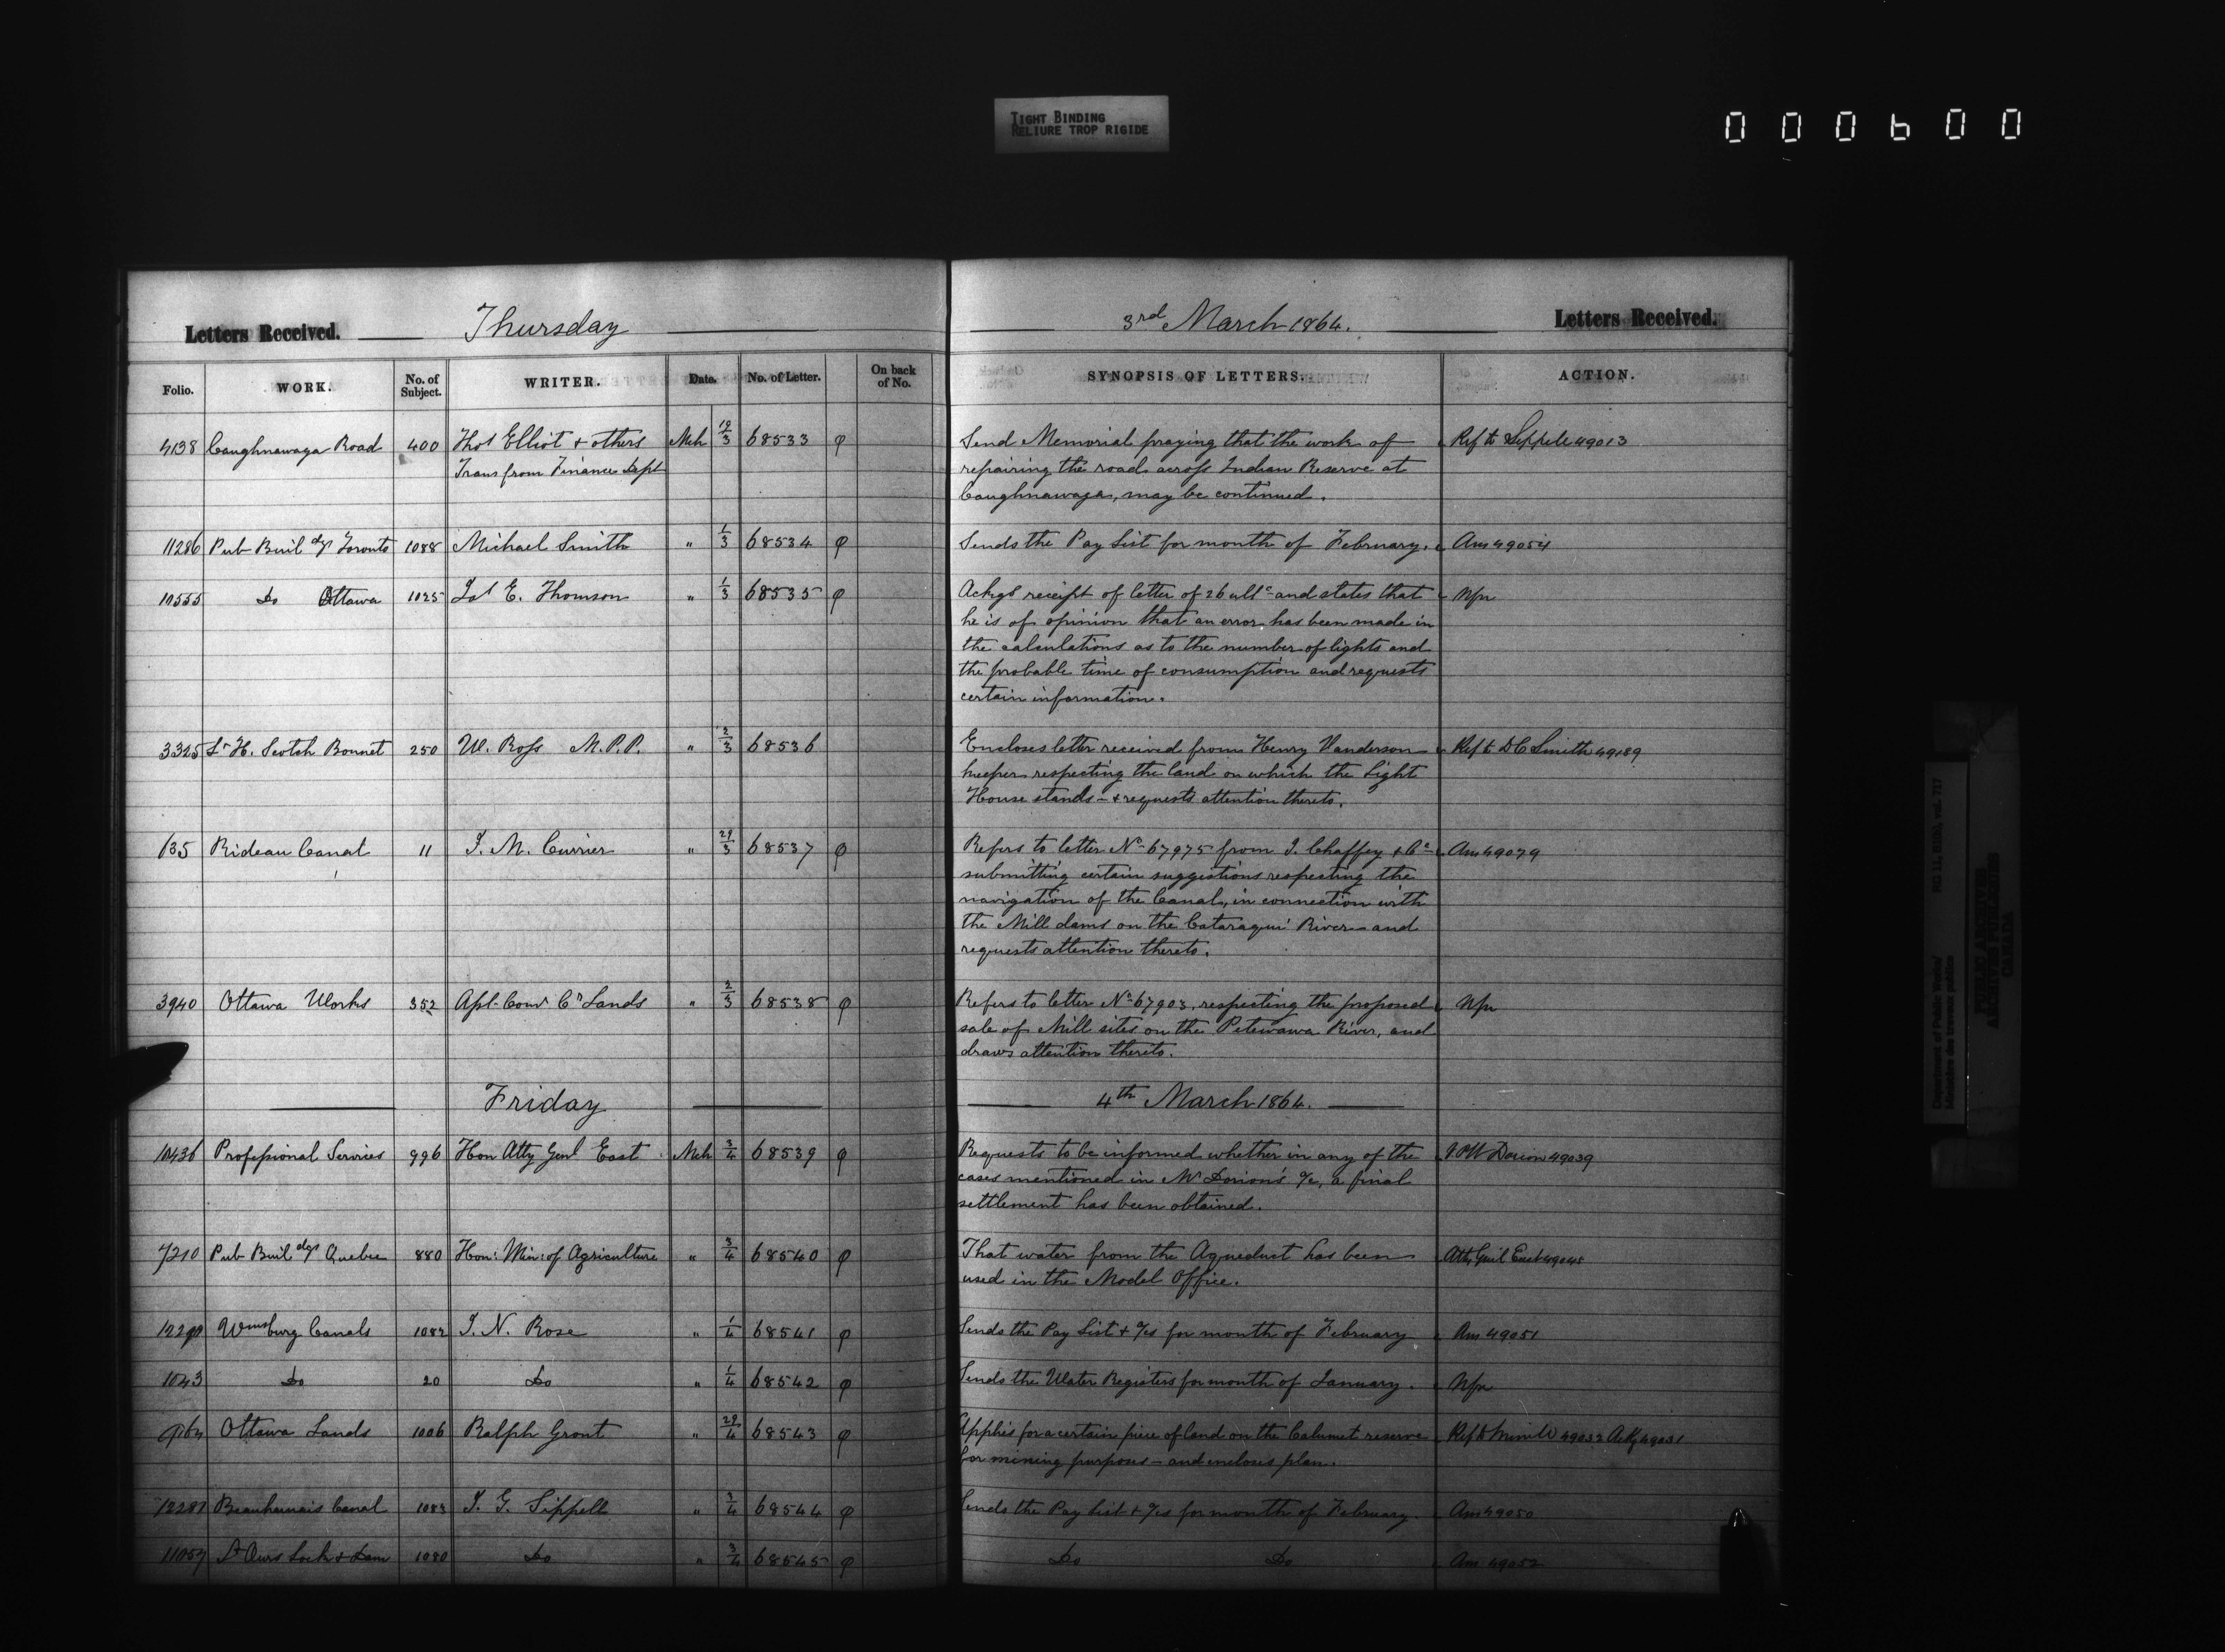 TIGHT BINDING
RELIURE TROP RIGIDE
000600
Letters Received. Thursday 3rd March 1864. Letters Received.
Folio. WORK. No. of Subject. WRITER. Date. No. of Letter. On back of No. SYNOPSIS OF LETTERS. ACTION.
4138 Caughnawaga Road 400 Thos Elliot + others Mch 19/3 68533 φ Send Memorial praying that the work of Ref to Sippell 49013
Trans from Finance Dept repairing the road across Indian Reserve at
Caughnawaga, may be continued.
11286 Pub Buildgs Toronto 1088 Michael Smith " 1/3 68534 φ Sends the Pay List for month of February. Am 49054
10555 Do Ottawa 1025 Jas E. Thomson " 1/3 68535 φ Ackgs receipt of letter of 26 ulto and states that Npr
he is of opinion that an error has been made in
the calculations as to the number of lights and
the probable time of consumption and requests
certain information.
3325 Lt H. Scotch Bonnet 250 W. Ross M.P.P. " 2/3 68536 Encloses letter received from Henry Vanderson Ref to D C Smith 49189
keeper respecting the land on which the Light
House stands - + requests attention thereto.
135 Rideau Canal 11 J. M. Currier " 29/3 68537 φ Refers to letter No 67975 from J. Chaffey + Co Am 49079
submitting certain suggestions respecting the
navigation of the Canal, in connection with
the Mill dams on the Cataraqui River and
requests attention thereto.
3940 Ottawa Works 352 Asst Comr Cn Lands " 2/3 68538 φ Refers to letter No 67903, respecting the proposed Npr
sale of Mill sites on the Petewawa River, and
draws attention thereto.
Friday 4th March 1864.
10436 Professional Services 996 Hon Atty Genl East Mch 3/4 68539 φ Requests to be informed whether in any of the Dorion 49039
cases mentioned in Mr Dorion's a/c, a final
settlement has been obtained.
7210 Pub Buildgs Quebec 880 Hon: Min: of Agriculture " 3/4 68540 φ That water from the Aqueduct has been Atty Genl East 49045
used in the Model Office.
Wmsburg Canals 1082 J. N. Rose " 1/4 68541 φ Sends the Pay List + a/cs for month of February Am 49051
1043 Do 20 Do " 1/4 68542 φ Sends the Water Registers for month of January. Npr
Ottawa Lands 1006 Ralph Grant " 29/4 68543 φ Applies for a certain piece of land on the Calumet reserve Ref to 49032 Ackg 49031
for mining purposes - and encloses plan.
12281 Beauharnois Canal 1083 J. G. Sippell " 3/4 68544 φ Sends the Pay List + a/cs for month of February. Am 49050
11057 St Ours Lock + Dam 1080 Do " 3/4 68545 φ Do Do Am 49052
Department of Public Works/ RG 11, B1(b), vol. 717
Ministère des travaux publics
PUBLIC ARCHIVES
ARCHIVES PUBLIQUES
CANADA